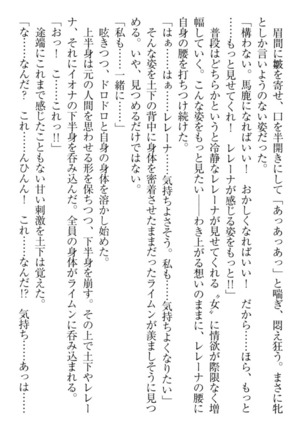 眉間に皺を寄せ、口を半開きにして「あっあっあっ」と喘ぎ、悶え狂う。まさに牝
としか言いようのない姿だった。
「構わない。馬鹿になればいい！　おかしくなればいい！　だから……ほら、もっと
……もっと見せてくれ！　レレーナが感じる姿をもっと!!」
　普段はどちらかというと冷静なレレーナが見せてくれる〝女〟に情欲が際限なく増
幅していく。こんな姿をもっと見たい――わき上がる想いのままに、レレーナの腰に
自身の腰を打ちつけ続けた。
「はぁ……はぁ……レレーナ……気持ちよさそう。私も……気持ちよくなりたい」
　そんな姿を土下の背中に身体を密着させたままだったライムンが羨ましそうに見つ
める。いや、見つめるだけではない。
「私も……一緒に……」
　呟きつつ、ドロドロと自身の身体を溶かし始めた。
　上半身は元の人間を思わせる形を保ちつつ、下半身を崩す。その上で土下やレレー
ナ、それにイオナの下半身を呑み込んだ。全員の身体がライムンに呑み込まれる。
「おっ！　こ……これっ!!」
　途端にこれまで感じたこともない甘い刺激を土下は覚えた。
「な……なんだ！　これ……んひんん！　これ……なんだ!?　気持ち……あっは……